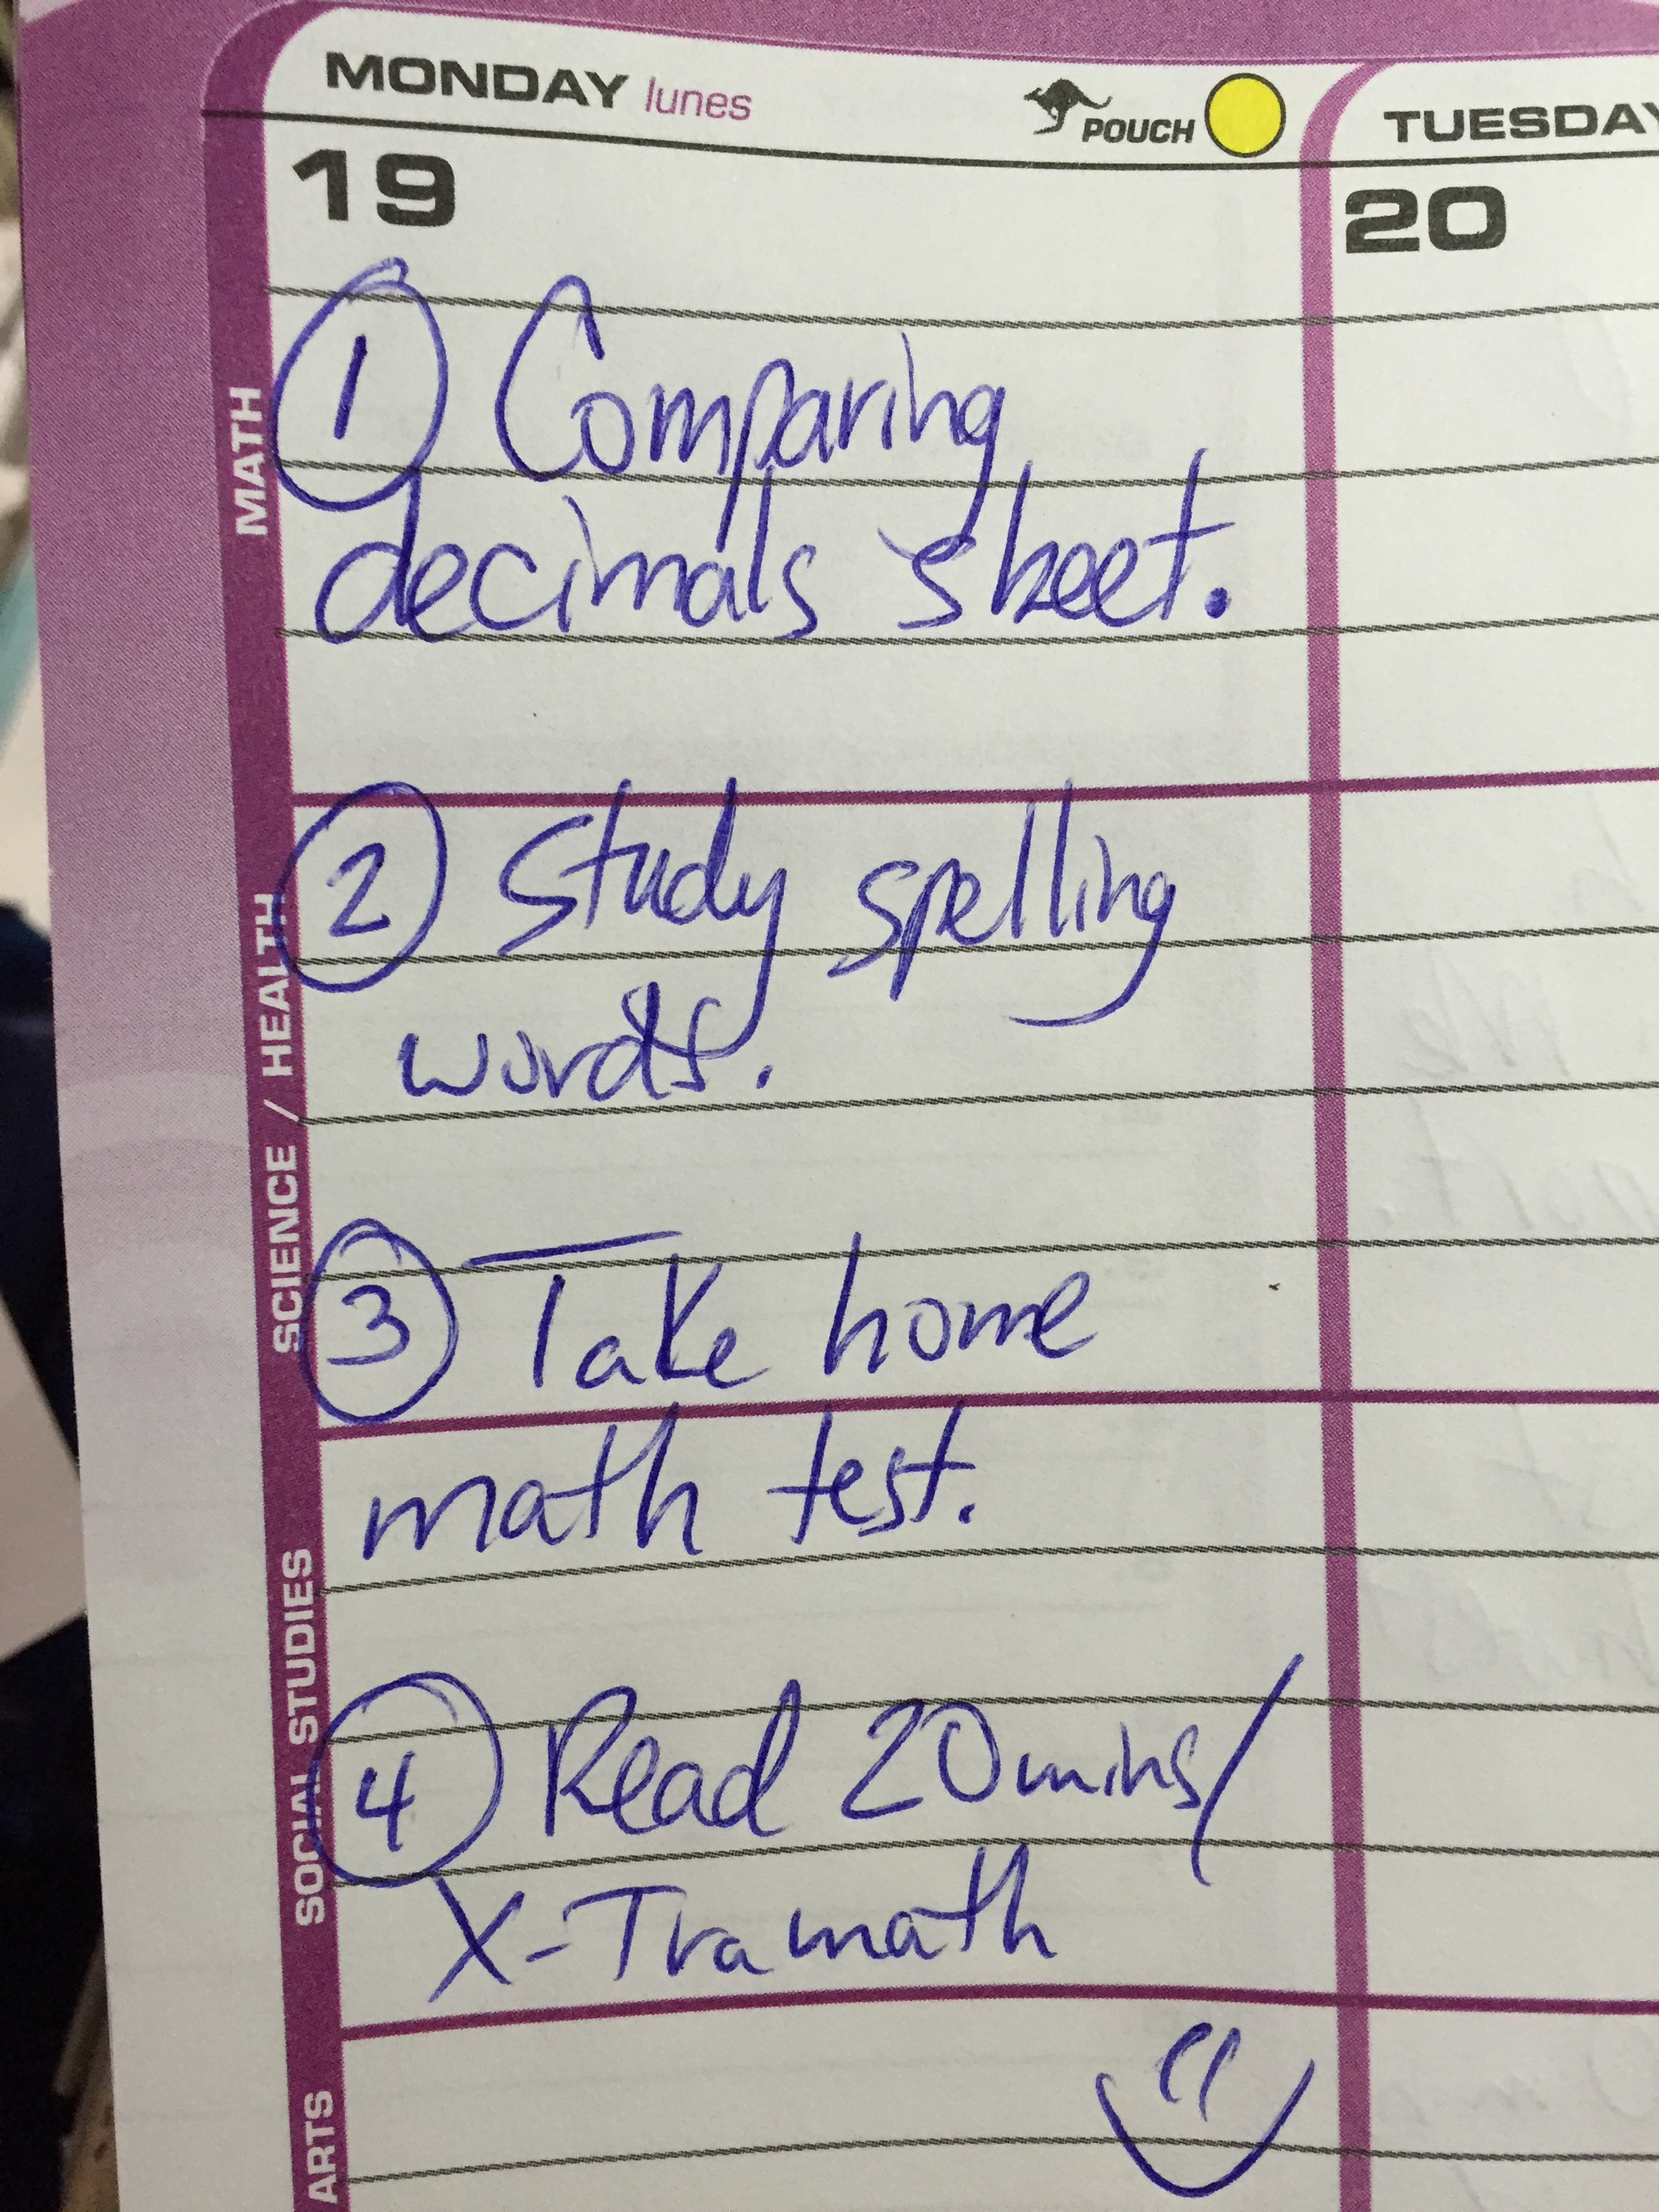 MONDAY lunes POUCH
TUESDAY
19
20
MATH
1 Comparing
decimals sheet.
SCIENCE / HEALTH
2 Study spelling
words.
3 Take home
math test.
SOCIAL STUDIES
4 Read 20mins/
X-Tramath
ARTS